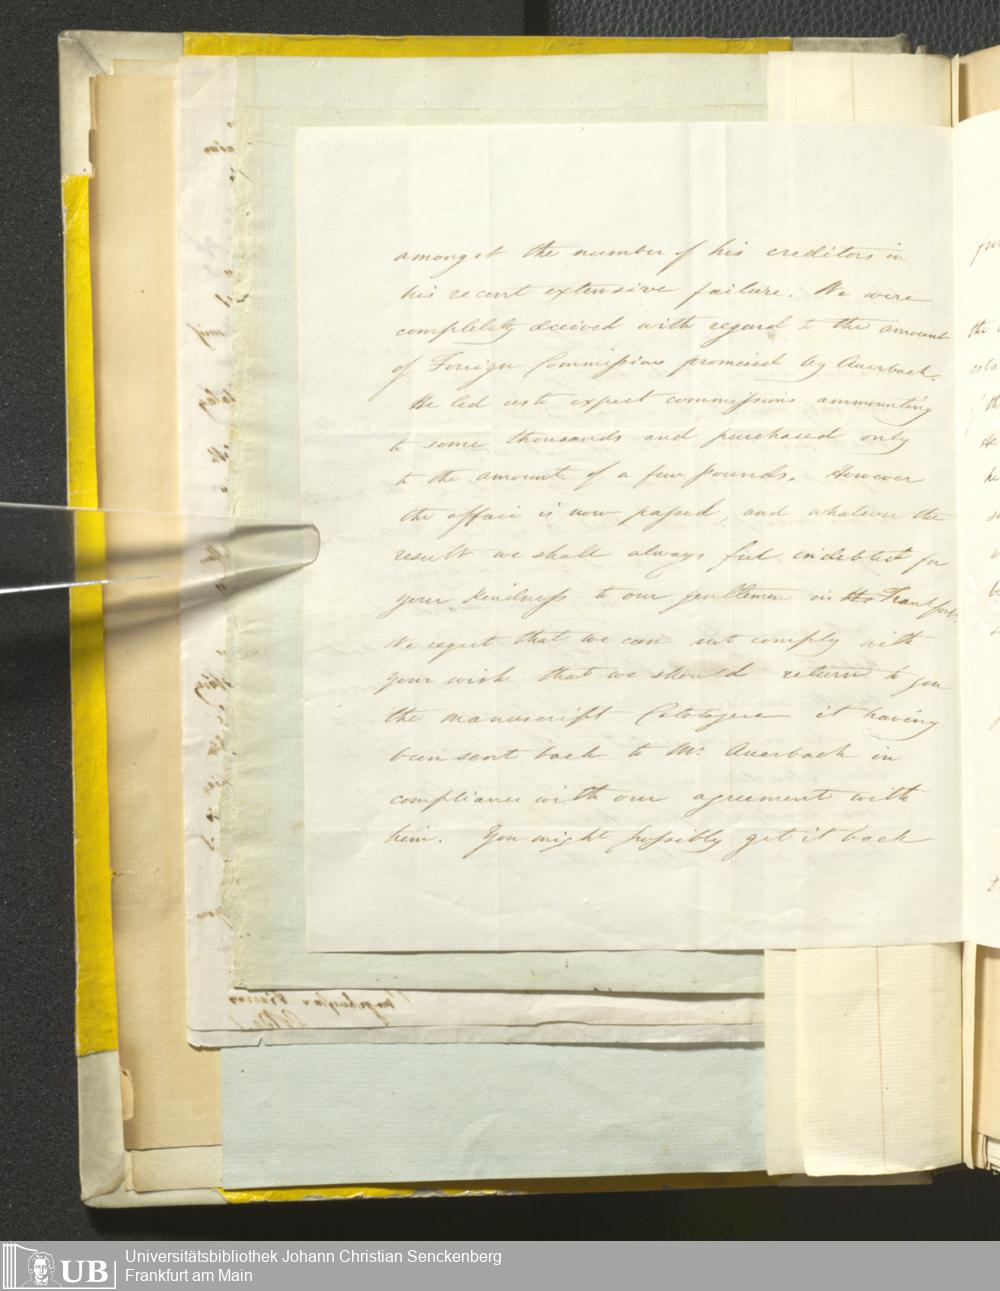 amongst the number of his creditors in
his recent extensive failure. We were
completely deceived with regard to the amount
of Foreign Commissions promised by Auerbach.
He led us to expect commissions ammounting
to some thousands and purchased only
to the amount of a few pounds. However
the affair is now passed, and whatever the
result we shall always feel indebted for
your kindness to our gentlemen in Frankfort.
We regret that we can not comply with
your wish that we should return to you
the manuscript Catalogue it having
been sent back to Mr. Auerbach in
compliance with our agreement with
him. You might possibly get it back
the
He
UB
Universitätsbibliothek Johann Christian Senckenberg
Frankfurt am Main